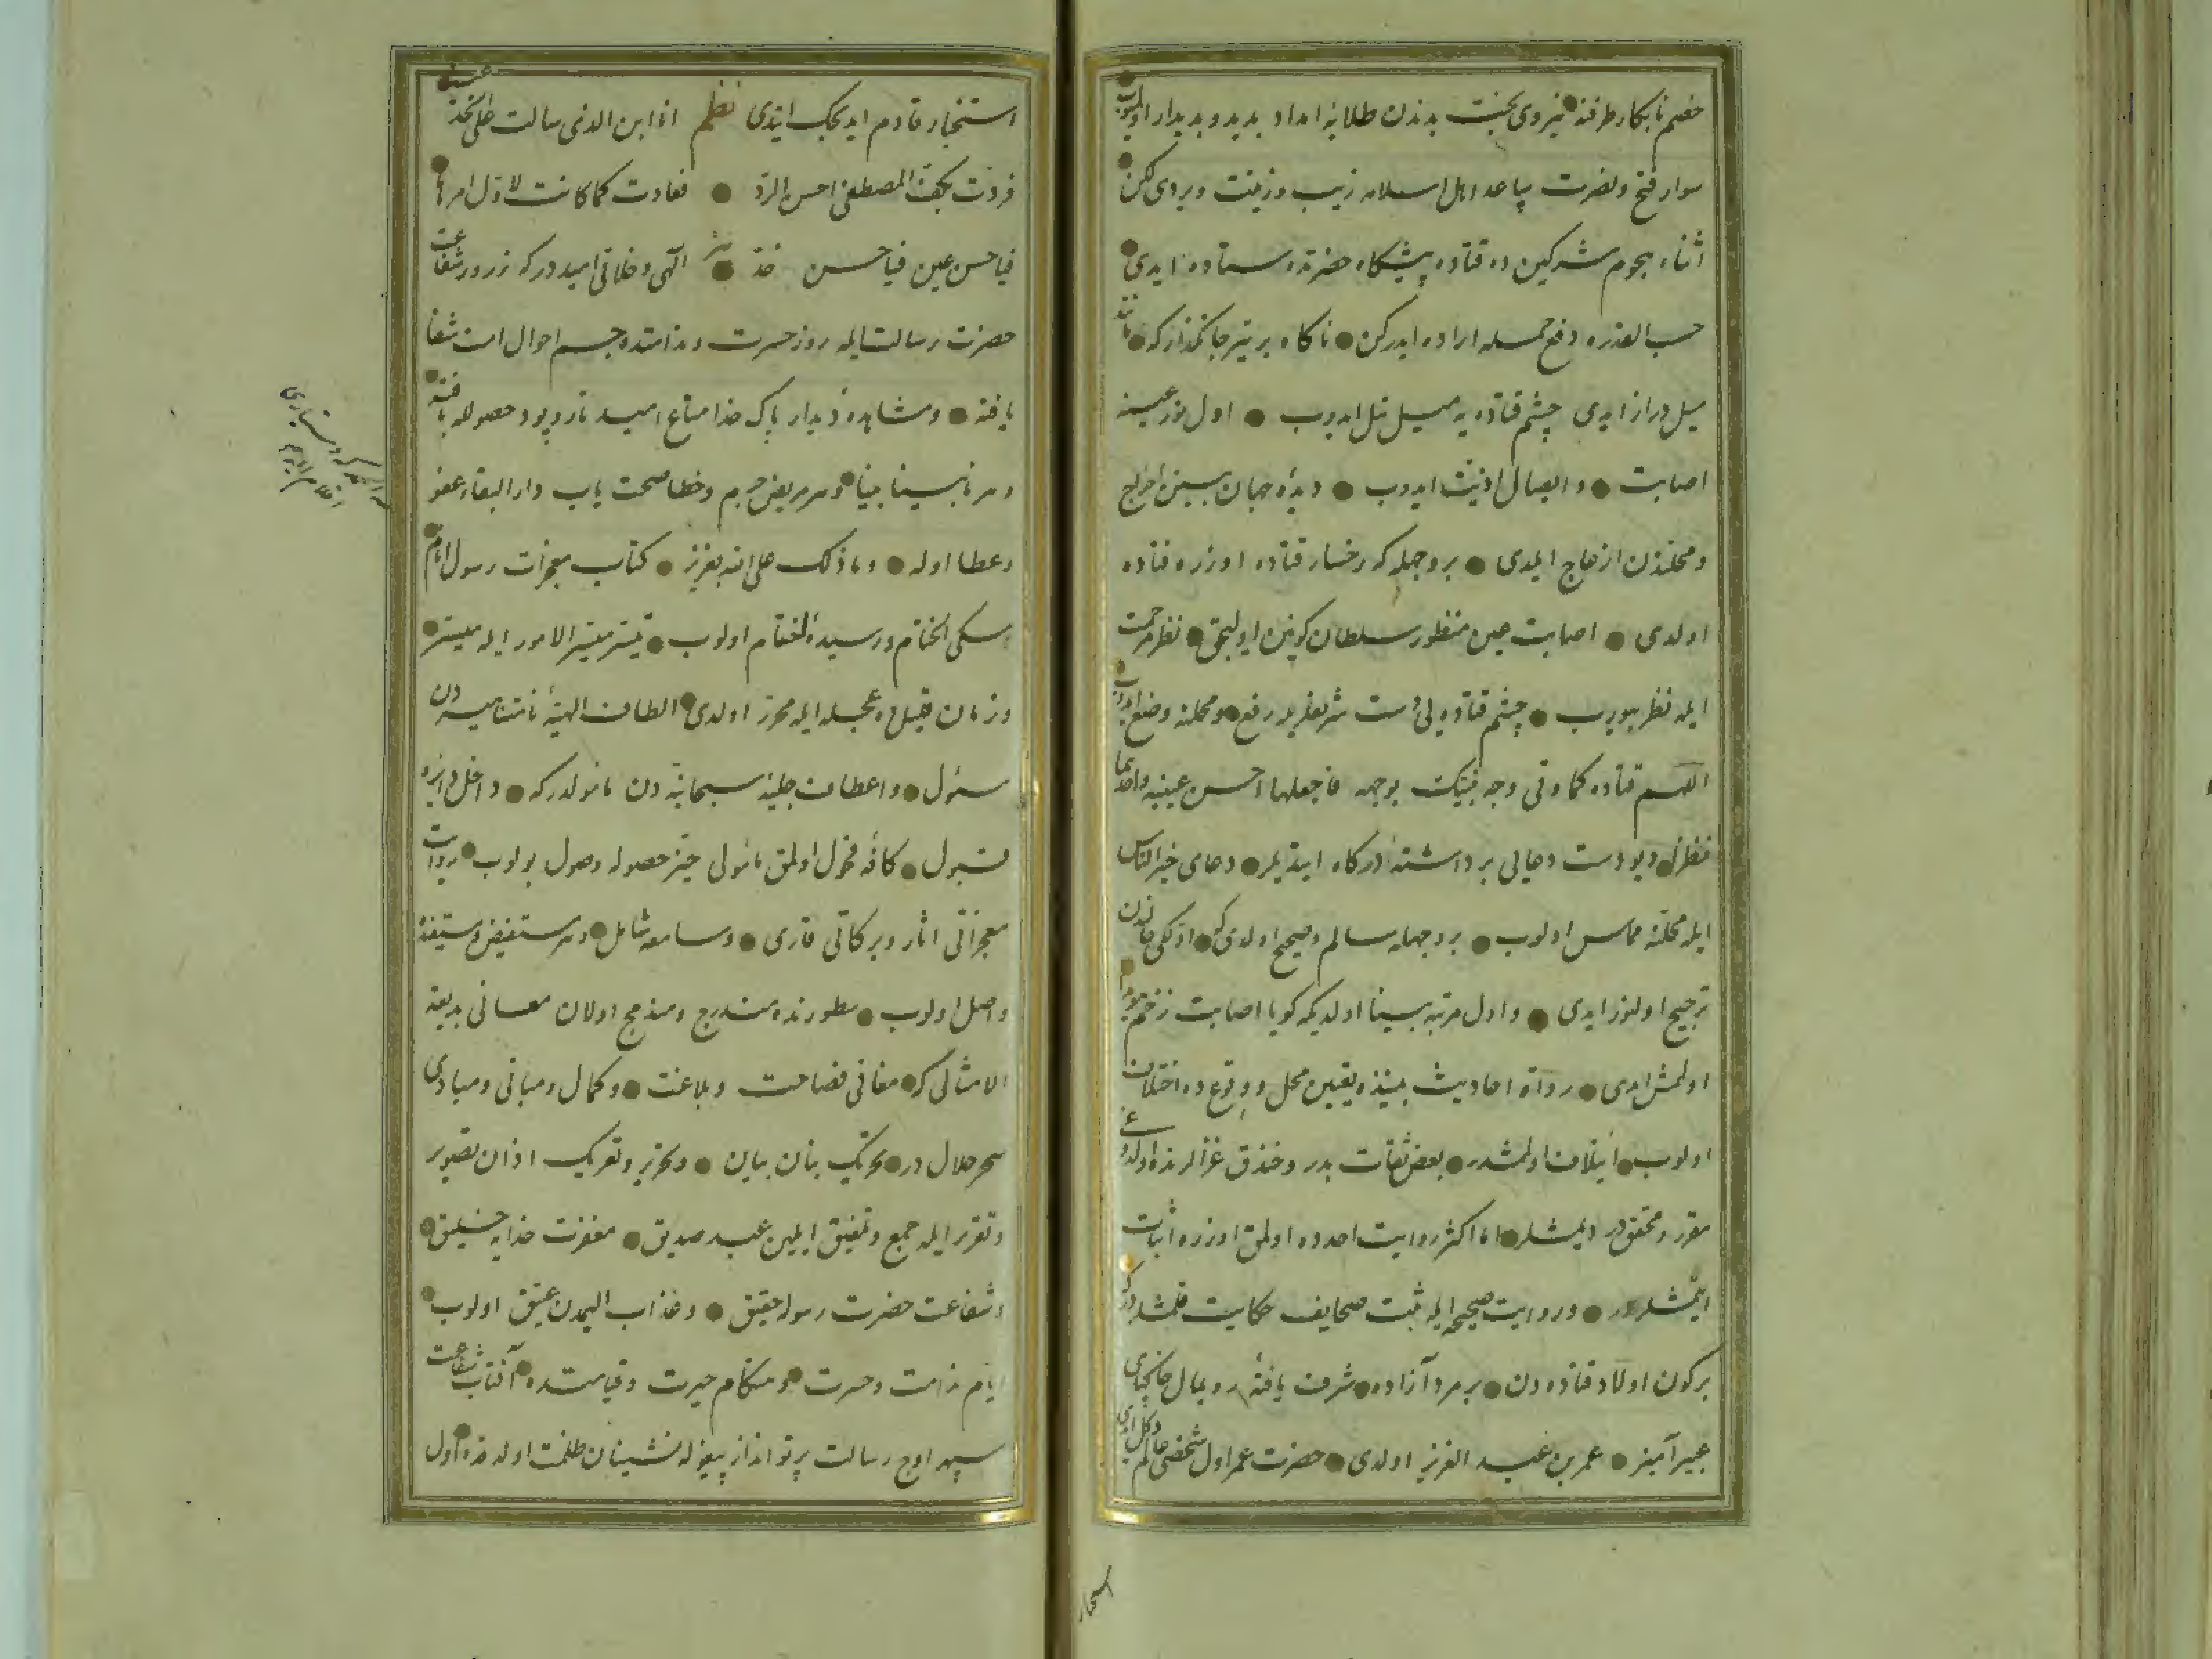 خصم نابكار طرفنه نيروى بخت بدندن طلايۀ امداد بديد و بديدار اولميوب
سوار فتح ونصرت پياعد اهل اسلامه زيب وزينت ويردى كن
اثناء هجوم مشركين ده قتاده پيشكاه حضرتده ستاده ايدى
حسب القدره دفع حمله اراده ايدركن ناكاه بر تير جانكذار كه مانند
ميل دراز ايدى چشم قتاده يه ميل ايدوب اول نور عينه
اصابت وايصال اذيت ايدوب ديدۀ جهان بينن اخراج
ومحلندن ازعاج ايلدى بروجهله كه رخسار قتاده اوزره فتاده
اولدى اصابت عين منظور سلطان كونين اوليجق نظر مرحمت
ايله نظر بيوروب چشم قتاده يى دست شريفلريله رفع ومحلنه وضع ايدوب
اللهم قتاده كما وقى وجه نبيك بوجهه فاجعلها احسن عينيه واحدهما
نظرا ديو دست دعايى برداشتۀ دركاه ايتديلر دعاى خير الناس
ايله محلنه مماس اولوب بروجهله سالم وصحيح اولدى كه اولكى حالندن
ترجيح اولنور ايدى واول مرتبه بينا اولديكه كويا اصابت زخم
اولمش ايدى رواة احاديث بيننده تعيين محل ووقوع ده اختلاف
اولوب ايتلاف اولمشدر بعض ثقات بدر وخندق غزالرنده اولدوغى
مقرر ومحققدر ديمشلر اما اكثر روايت احدده اولمق اوزره اثبات
ايتمشلردر وروايت صحيحه ايله ثبت صحايف حكايت قلمشلردركه
بركون اولاد قتاده دن بر مرد آزاده شرف يافتۀ رويمال خاكپاى
عبير آميز عمر بن عبد العزيز اولدى حضرت عمر اول شخصى
استخبار
استخبار قادم ايدجك ايتدى نظم انا ابن الذى سالت على الخد عينه
فردت بكف المصطفى احسن الرد فعادت كما كانت لاول امرها
فيا حسن عين فيا حسن خد نثر الهى وخلاقى اميددركه زرور شفاعت
حضرت رسالت ايله روز حسرت وندامتده جسم احوال امت شفا
يافته ومشاهدۀ ديدار پاك خدا متاع اميد تار وپود حصوله بافته
وهر نابينا بينا وهر مريض جرم وخطا صحت ياب دار البقاء عفو
وعطا اوله وما ذلك على الله بعزيز كتاب معجزات رسول انام
مسكى الختام ورسيدۀ اختتام اولوب تيسير ميسر الامور ايله ميسر
وزمان قليل وعجله ايله محرر اولدى الطاف الهيۀ نامتناهيه دن
مسئول واعطاف جليۀ سبحانيه دن مامولدركه داخل دايرۀ
قبول كافۀ فحول اولمق مامولى حيز حصوله وصول بولوب روايت
معجزاتى اثار وبركاتى قارى وسامعه شامل وهر مستفيض ومستفيده
واصل اولوب سطورنده مندرج ومندمج اولان معانى بديعة
الامثالى كه معانى فصاحت وبلاغت وكمال ومبانى ومبادى
سحر حلال در تحريك بنان بيان وتحرير وتعريك اذان تصوير
وتقرير ايله جمع وتلفيق ايلين عبد صديق مغفرت خدايه خليق
وشفاعت حضرت رسوله حقيق وعذاب اليمدن عتيق اولوب
ايام ندامت وحسرت وهنكام حيرت وقيامتده آفتاب شفاعت
سپهر اوج رسالت پرتو انداز پيغوله نشينان ظلمت اولدقده اول